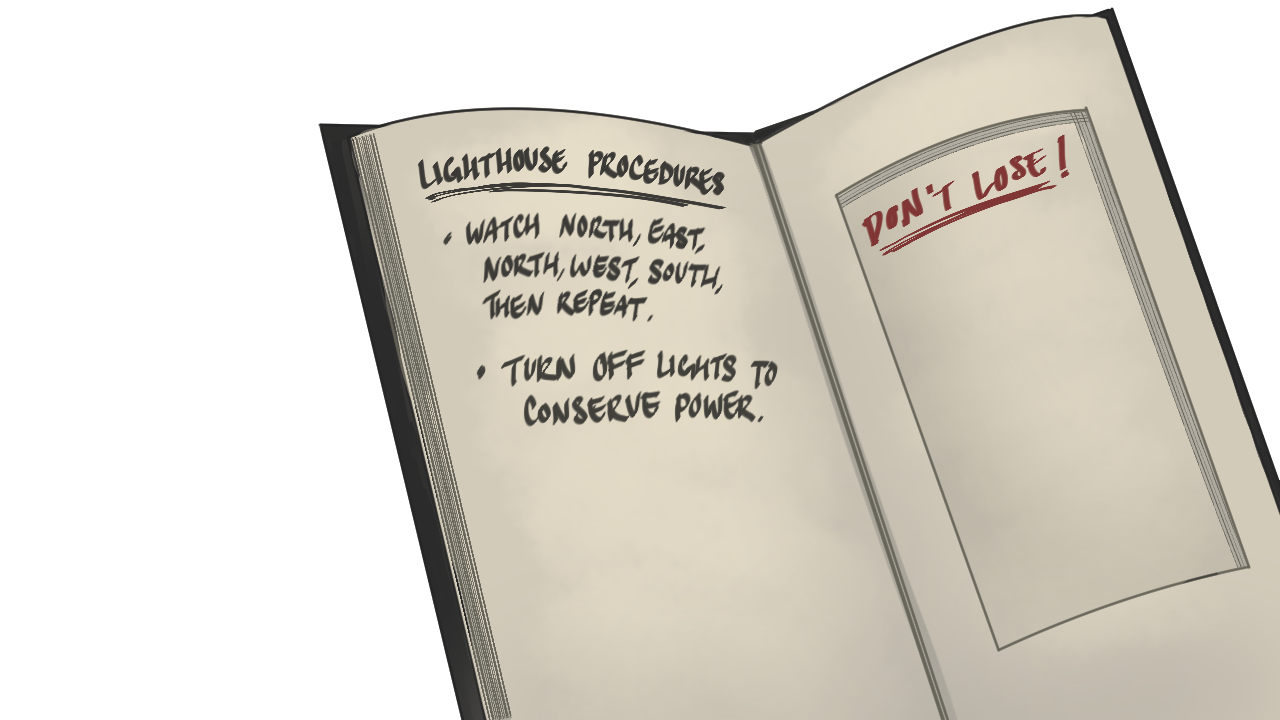 LIGHTHOUSE PROCEDURES
• WATCH NORTH, EAST,
NORTH, WEST, SOUTH,
THEN REPEAT.
• TURN OFF LIGHTS TO
CONSERVE POWER.
DON'T LOSE!